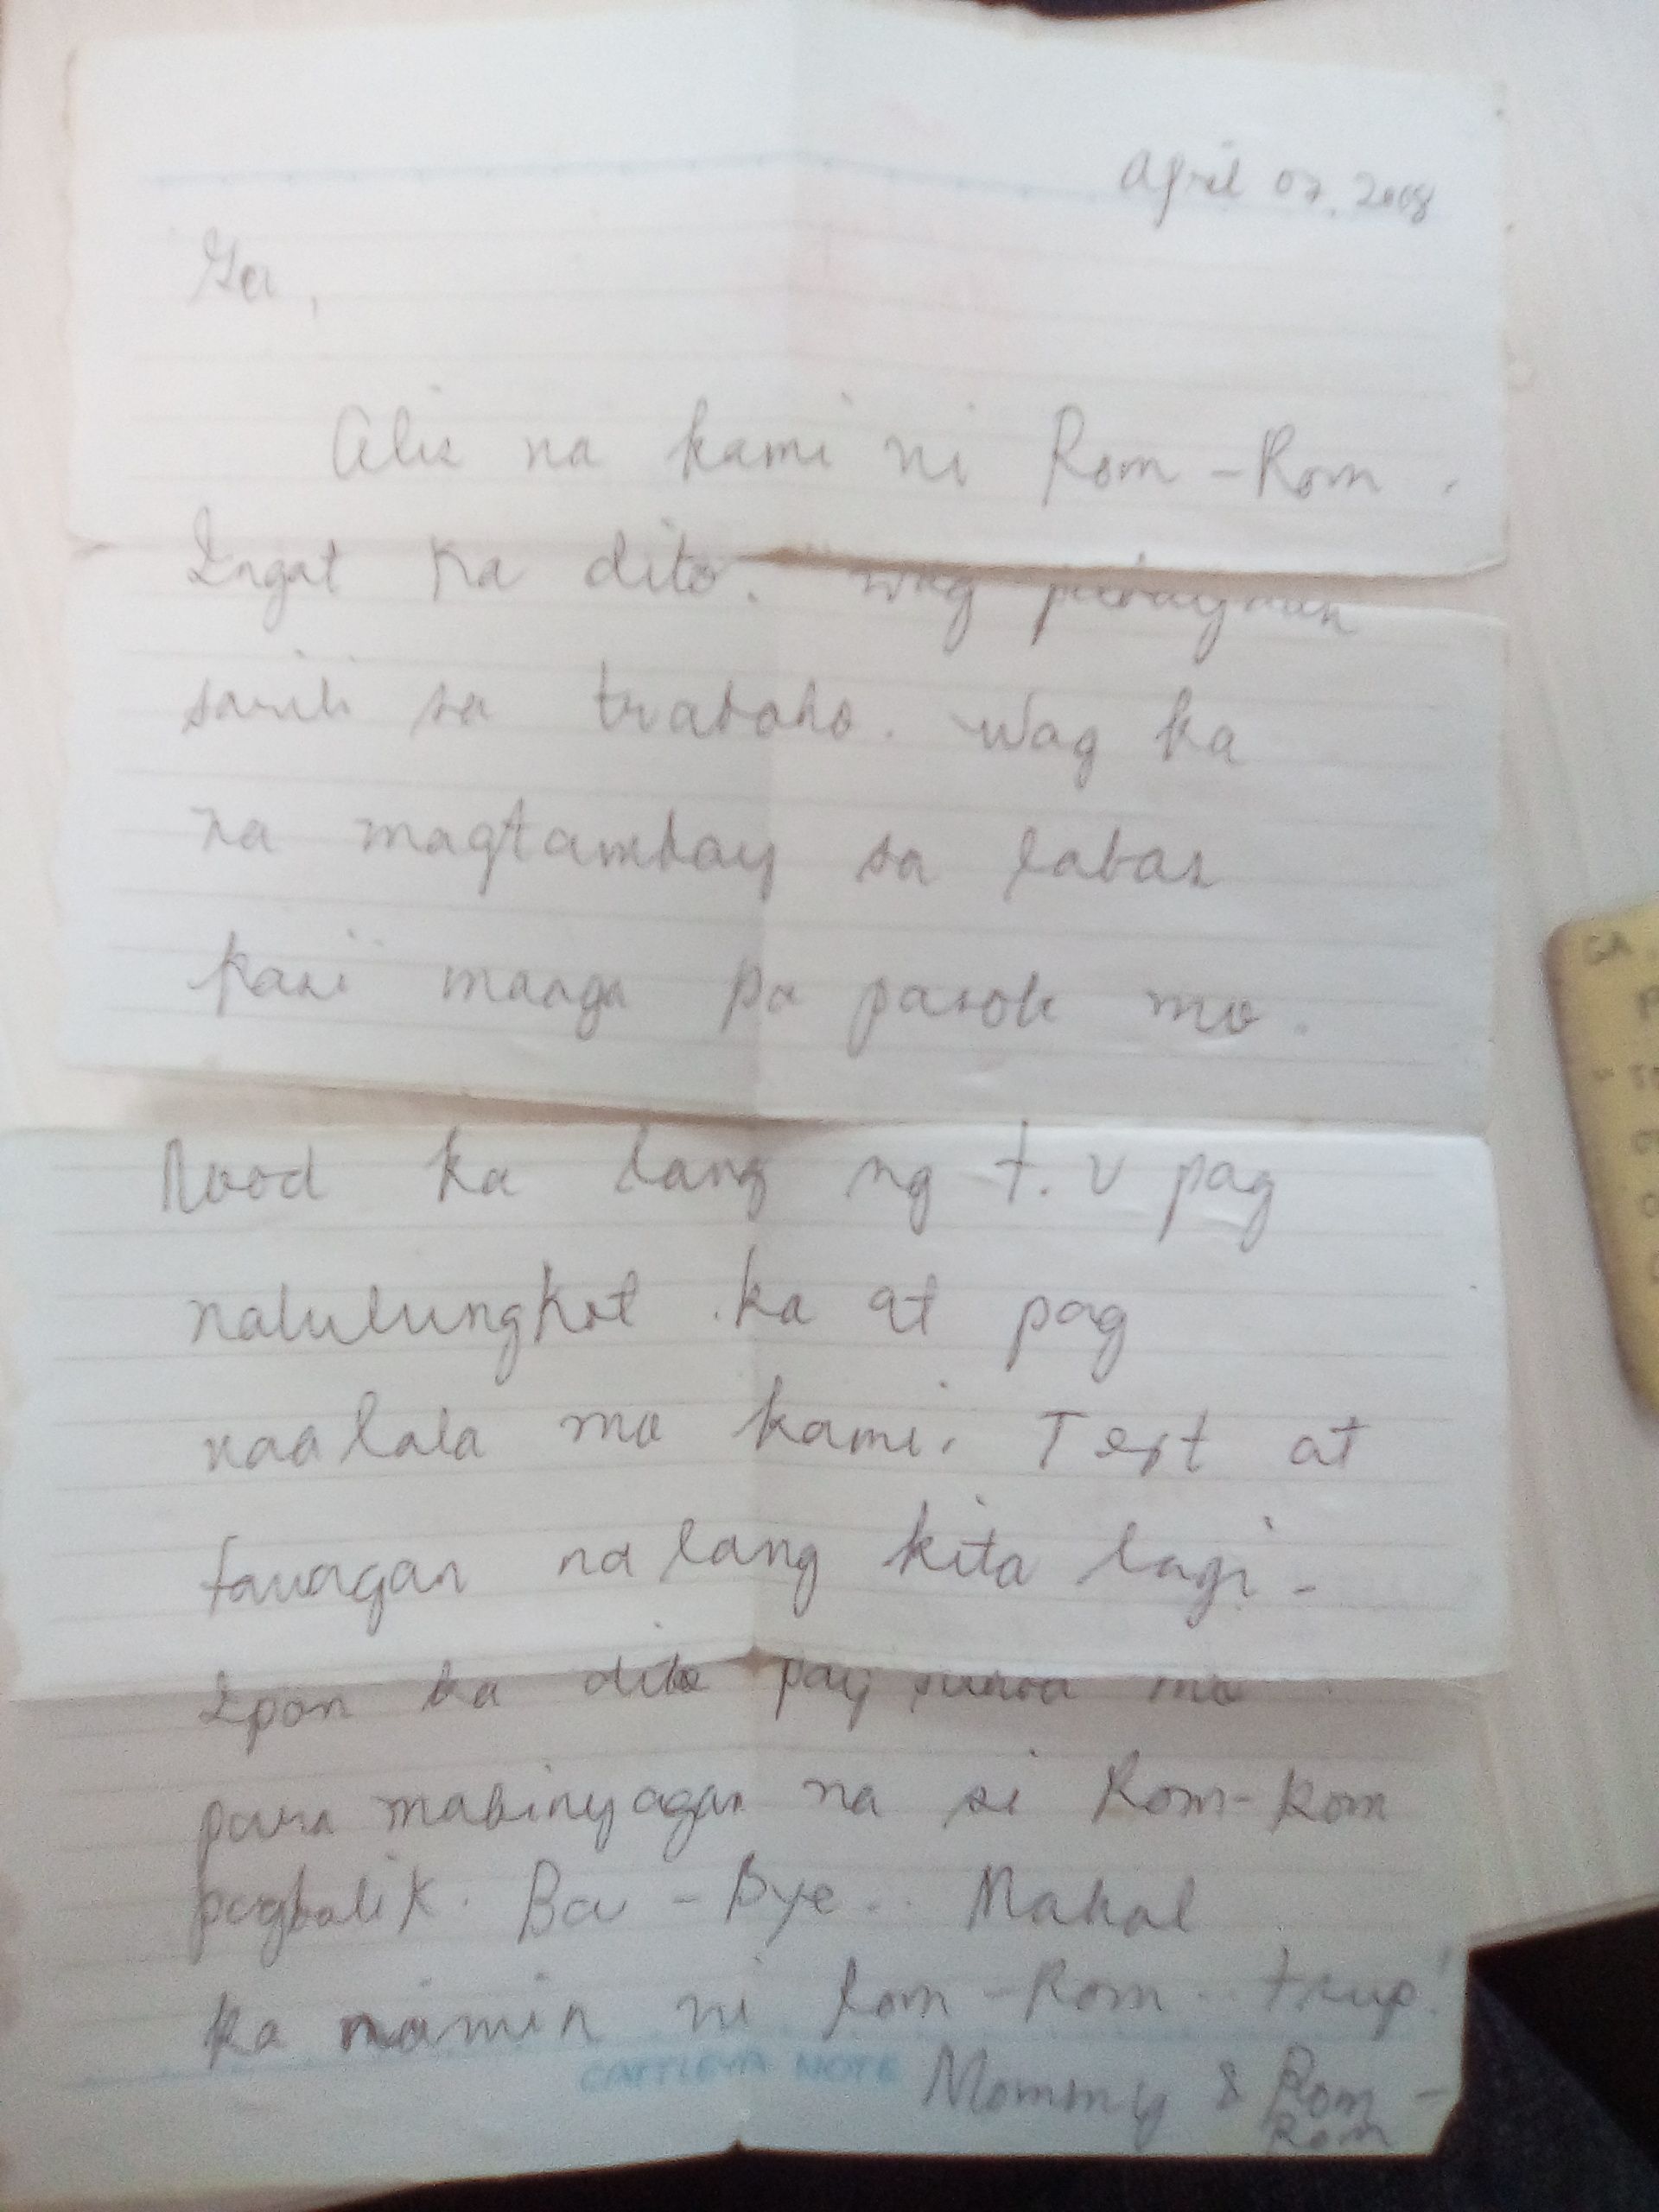 April 07, 2008
Ga,
Alis na kami ni Rom-Rom.
Ingat ka dito. Wag pabayaan
sarili sa trabaho. Wag ka
na magtambay sa labas
kasi maaga pa pasok mo.
Nood ka lang ng t.v pag
nalulungkot ka at pag
naalala mo kami. Text at
tawagan na lang kita lagi-
Ipon ka dito pag
para mabinyagan na si Rom-Rom
pagbalik. Ba-Bye.. Mahal
ka namin ni Rom-Rom..
CATTLEYA NOTE Mommy & Rom-
Rom
GA